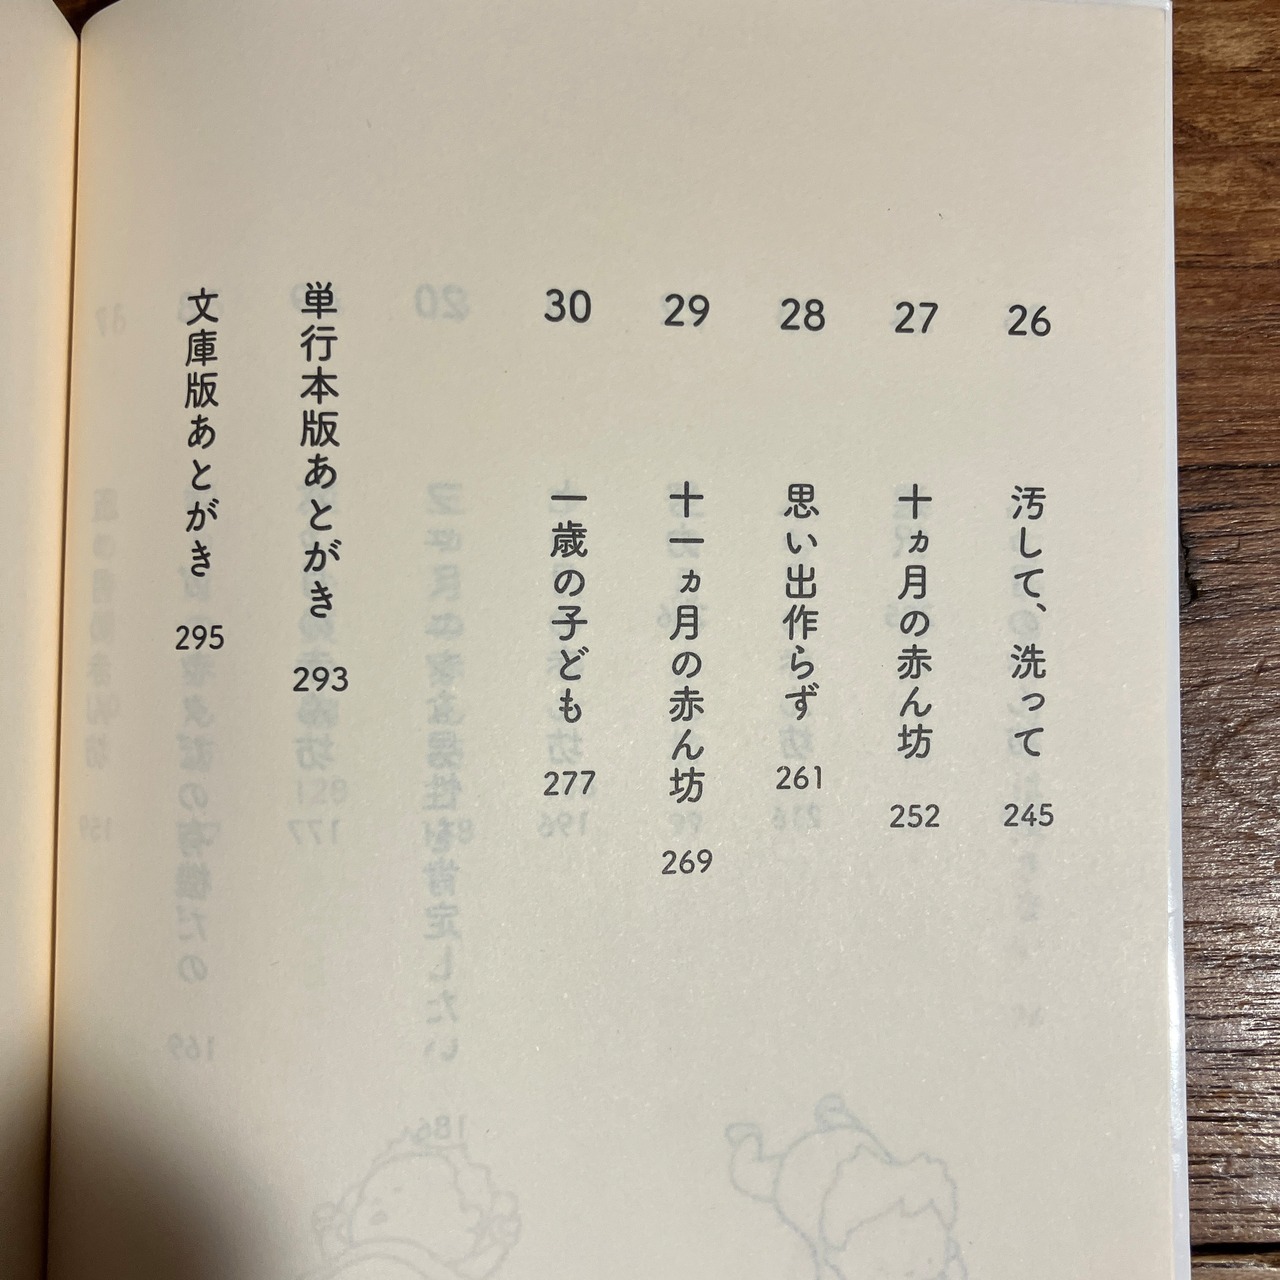 26 汚して、洗って 245
27 十ヵ月の赤ん坊 252
28 思い出作らず 261
29 十一ヵ月の赤ん坊 269
30 一歳の子ども 277
単行本版あとがき 293
文庫版あとがき 295